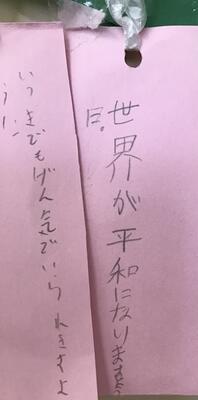 世界が平和になりますよう
に。
いつまでもげん気でいられますよ
うに